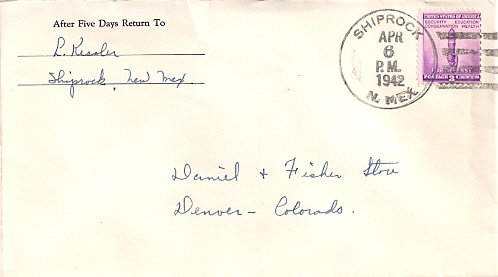 After Five Days Return To
L. Kessler
Shiprock, New Mex.
SHIPROCK
APR
6
P.M.
1942
N. MEX.
UNITED STATES OF AMERICA
SECURITY EDUCATION
CONSERVATION HEALTH
FOR DEFENSE
POSTAGE 3 CENTS
Daniel & Fisher Store
Denver – Colorado.